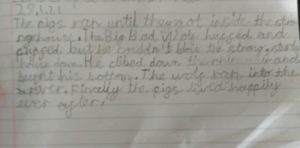 28.1.21
The pigs ran until they got inside the stro
ng house. The Big Bad Wolf huffed and
puffed but he couldn't blow the strong, sturdy
house down. He climbed down the chimney and
burnt his bottom. The wolf ran into the
river. Finally the pigs lived happily
ever after.